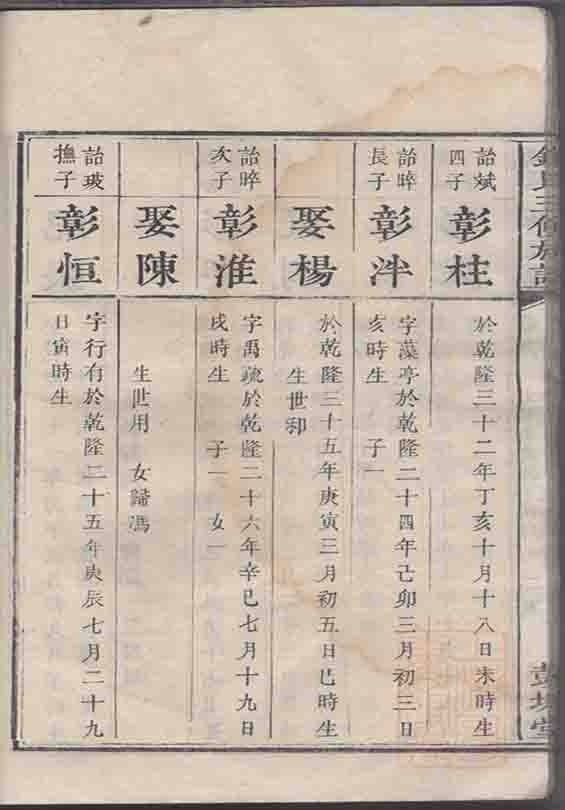 三修族譜
詒斌
四子
彰柱
於乾隆三十二年丁亥十月十八日未時生
詒晬
長子
彰泮
字藻亭於乾隆二十四年己卯三月初三日
亥時生　子一
娶楊
於乾隆三十五年庚寅三月初五日巳時生
生世和
詒晬
次子
彰淮
字禹疏於乾隆二十六年辛巳七月十九日
戌時生　子一　女一
娶陳
生世用　女歸馮
詒玻
撫子
彰恒
字行有於乾隆二十五年庚辰七月二十九
日寅時生